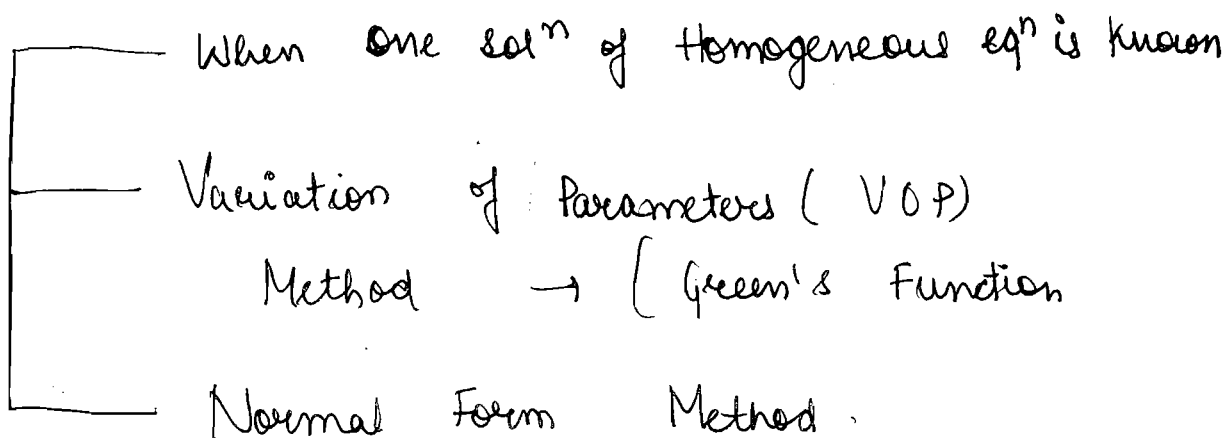 When one solⁿ of Homogeneous eqⁿ is known
Variation of Parameters ( VOP)
Method → ( Green's Function
Normal Form Method.